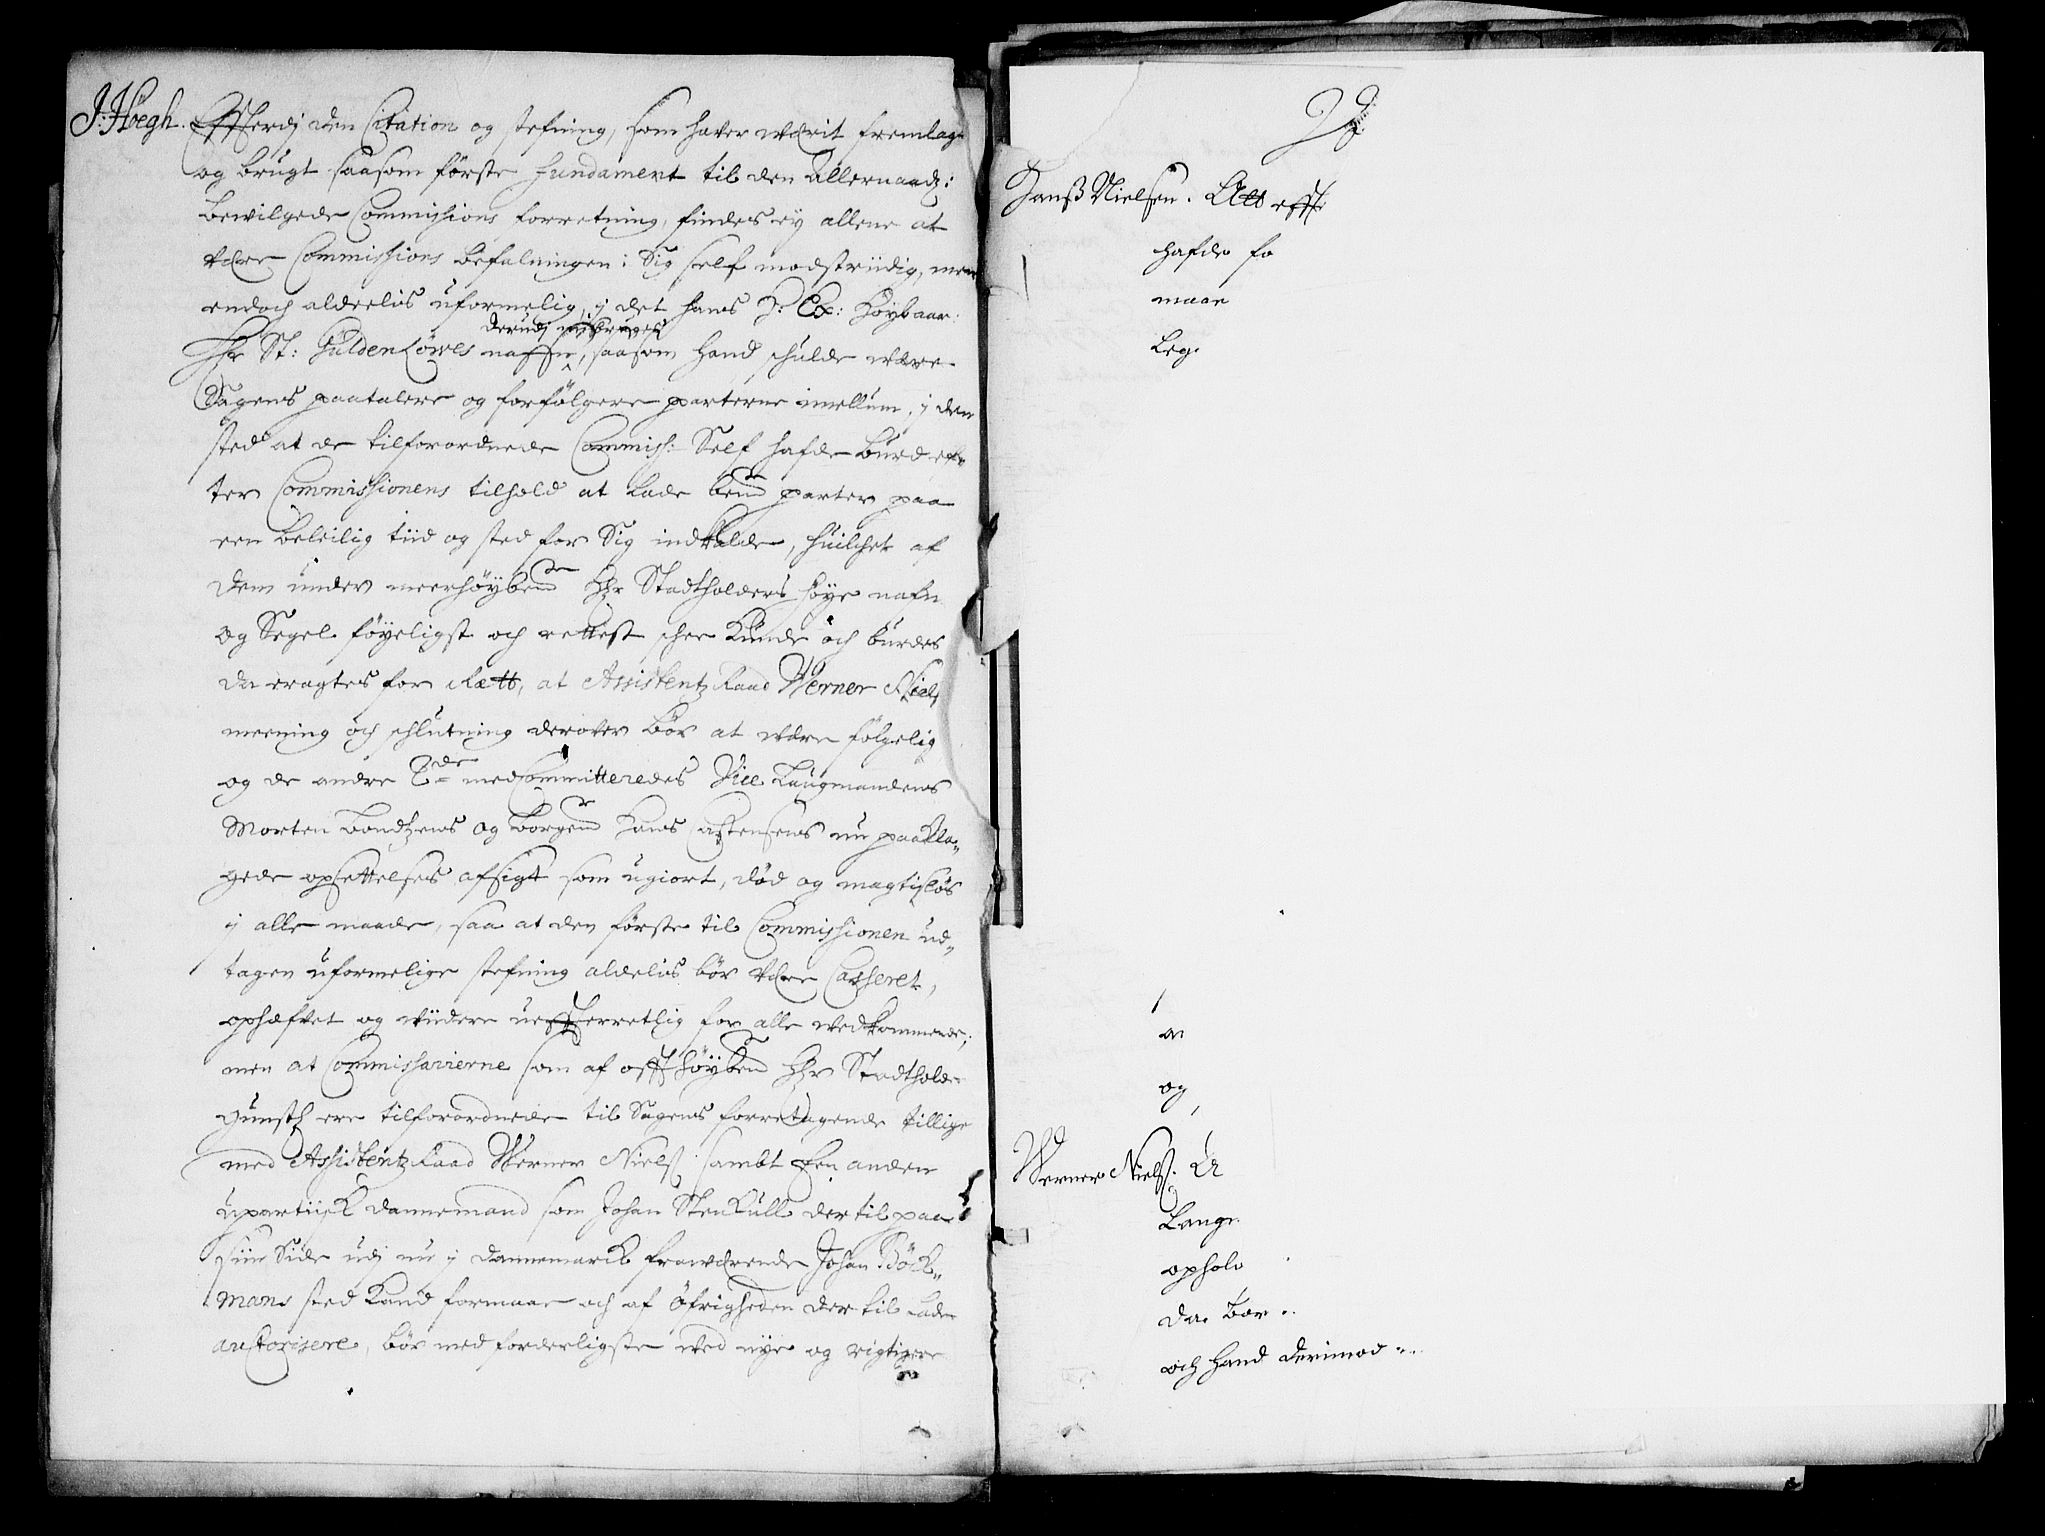 J: Høegh. Effterdj den Citation og stefning, som hafver værit fremlagt
og brugt saasom første fundament til den Allernaad:
bewilgede Commissions forretning, findes ey allene at
være Commissions befalningen i Sig self modstriidig, men
endoch aldeelis uformelig, j det hans H: Ex: Høybaar:
derudj misbruges
Hr St: Güldenløwes naffn, saasom hand schulde være
Sagens paatalere og forfølgere parterne imellum, j den
sted at de tilforordnede Commiss: Self hafde burd ef„
ter Commissionens tilhold at lade bemte parter paa
een beleilig tiid og sted for Sig indkalde, huilchet af
dem under meerhøybemte Hr Stadtholders høye nafn
og Segel føyeligst och rettest schee kunde och burde
da eragtes for Rett, at Assistentz Raad Werner Niels
meening och schlutning derover bør at være følgelig
og de andre 2de medCommitteredes Vice Laugmandens
Morten Bondtzens og borgem Hans Castensens nu paakla„
gede opsettelses afsigt som ugiort, død og magtisløs
j alle maade, saa at den første til Commissionen ud„
tagen uformelige stefning aldelis bør være Casseret,
ophæfvet og viidere uefferretlig for alle vedkommende;
men at Commissarierne som af offthøybemte Hr Stadtholde
gunstl ere tilforordnede til Sagens forretagende tillige
med Assistentz Raad Werner Niels sambt Een anden
upartiisk dannemand som Johan Stenkull der til paa
siin Side udj nu j Dannemarck frawærende Johan Böck„
mans sted kand formaae och af Øfrigheden der til lade
auctorisere, bør med forderligste ved nye og rigtigere
Hanß Nielsen. Att eff
hafde fo
maae
Leg
a
og
Werner Niels.
Lange
ophold
da bør
och hand derimod